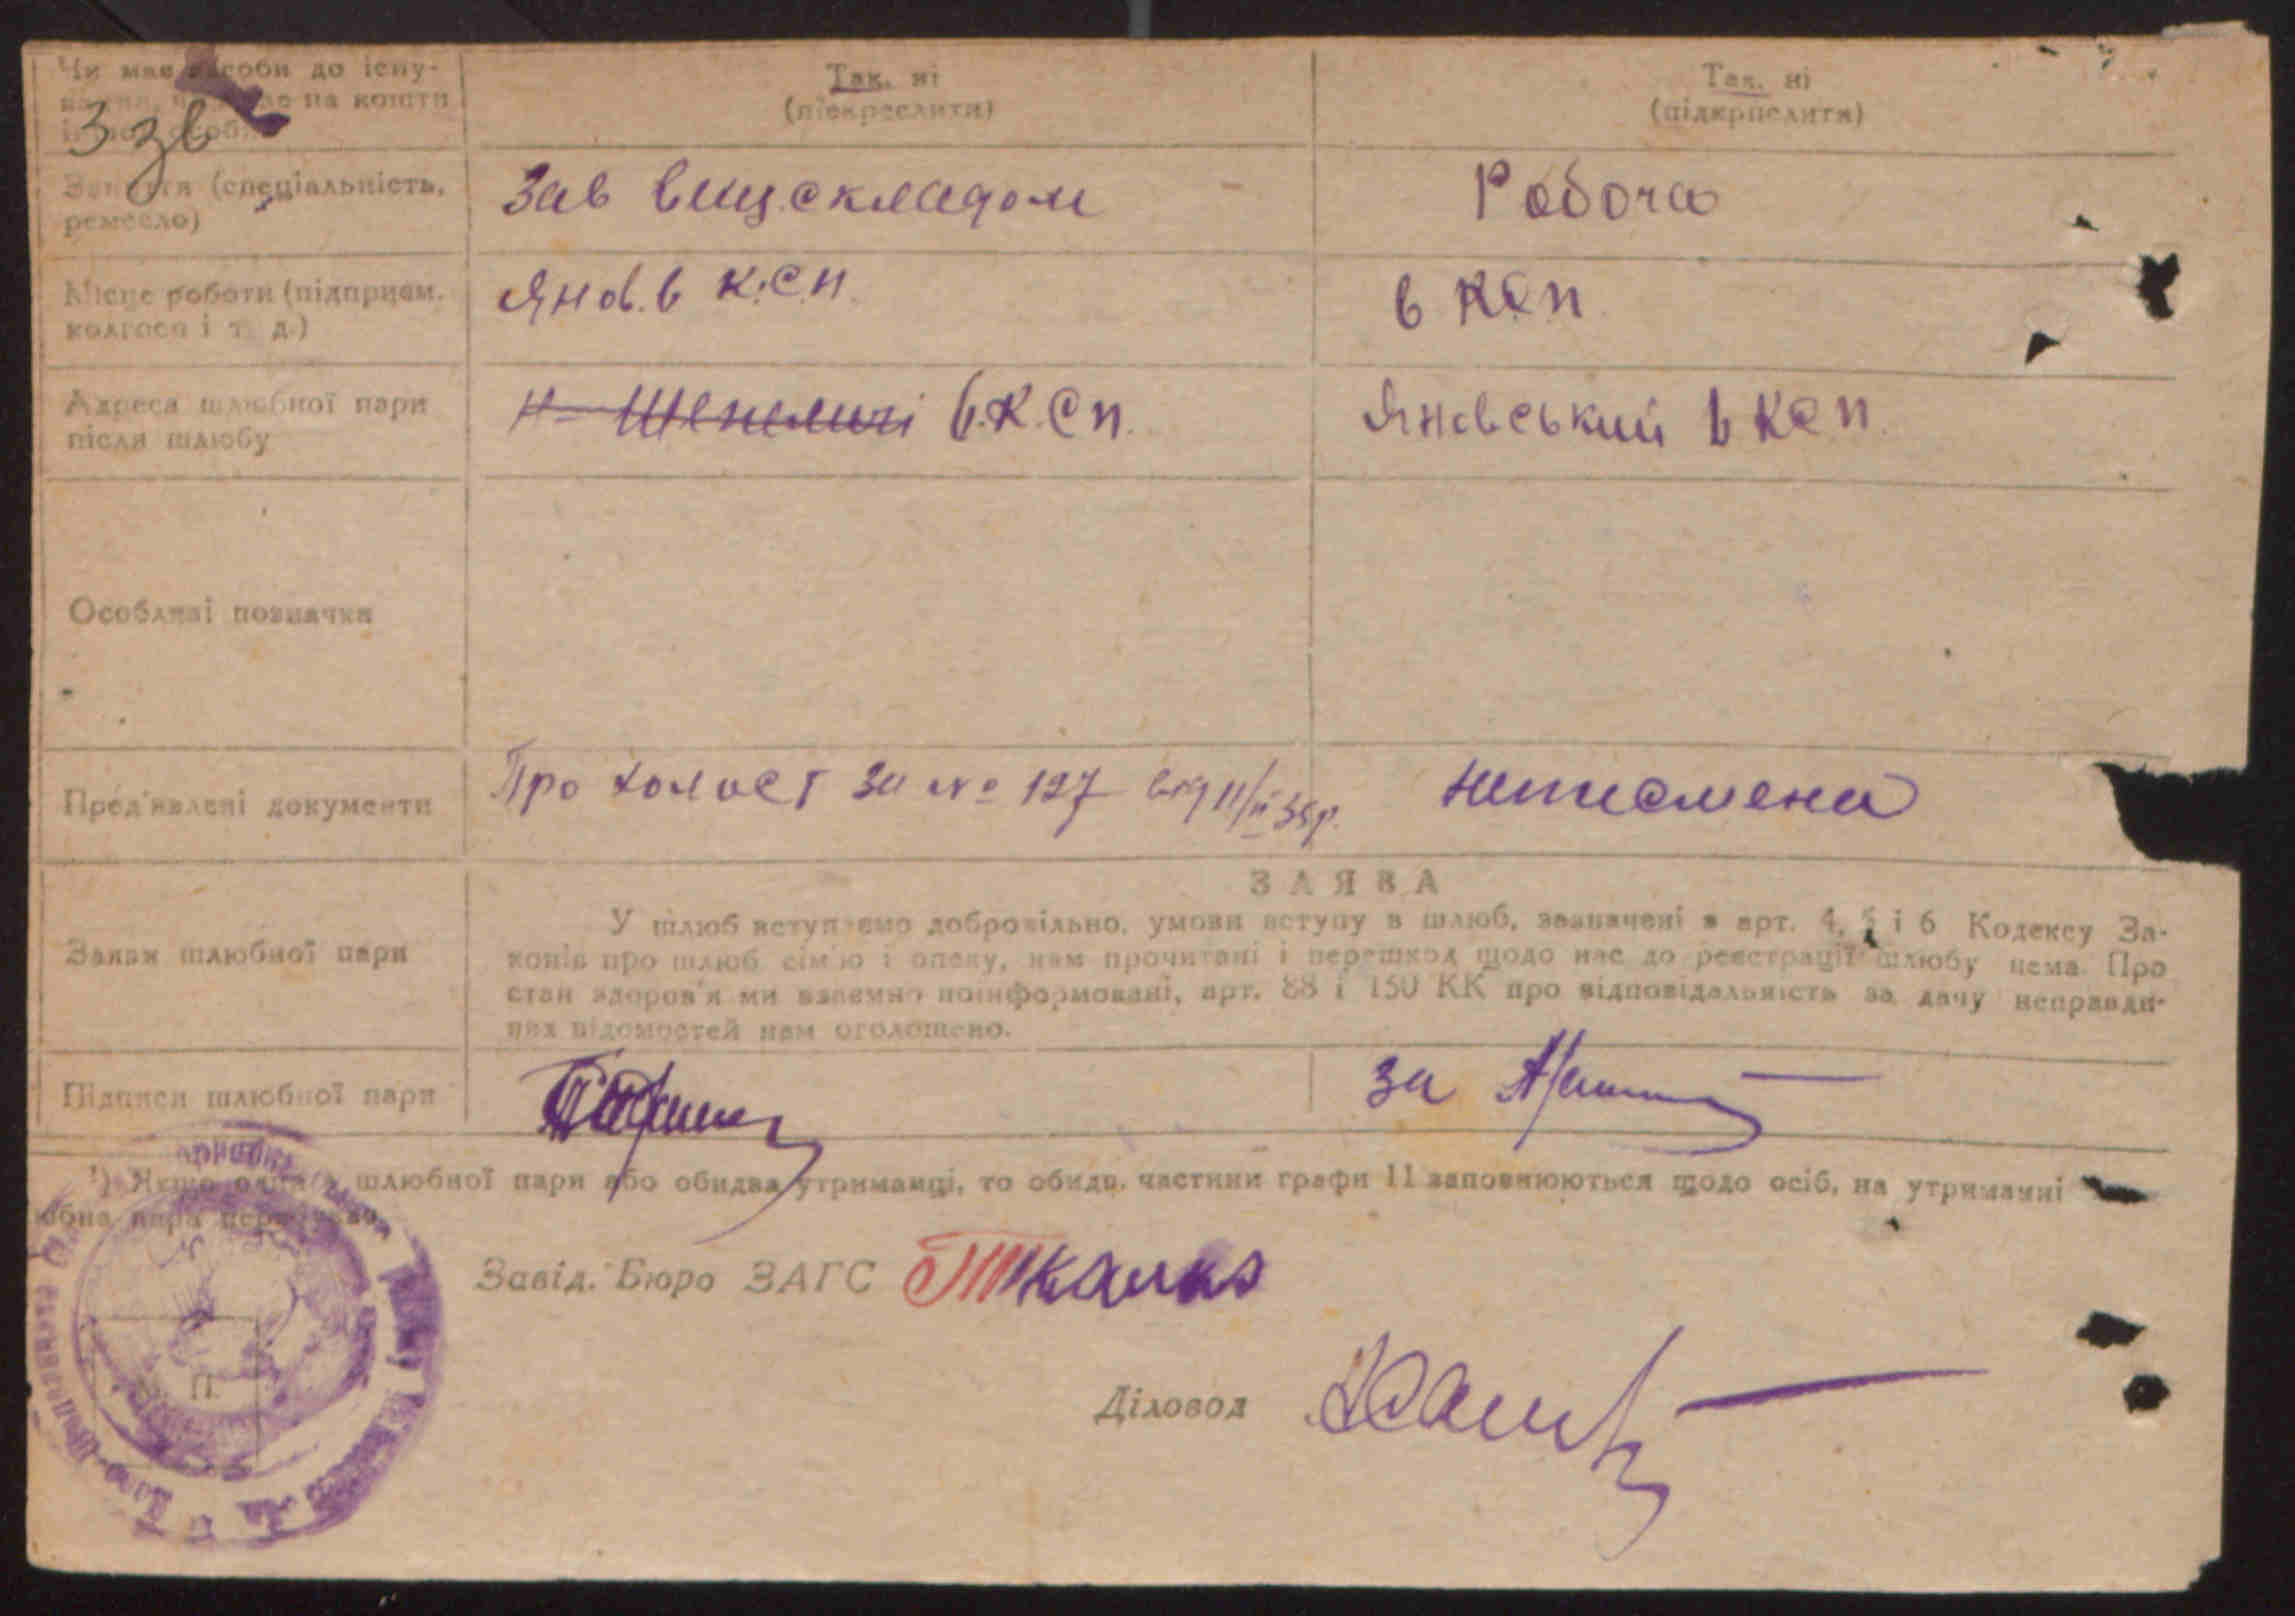 Чи має засоби до існу-
на кошти
3 зв
Так, ні
(підкреслити)
Так, ні
(підкреслити)
Заняття (спеціальність,
ремесло)
Зав вищ.складом
Робоча
Місце роботи (підприєм.
колгосп і т. д.)
Янов. в к.с.п.
в ксп
Адреса шлюбної пари
після шлюбу
Н-Шепеличі в.к.сп.
Яновський в ксп.
Особливі позначки
Пред'явлені документи
Про холост за № 127 від 11/
неписмена
ЗАЯВА
Заява шлюбної пари
У шлюб вступаємо добровільно, умови вступу в шлюб, зазначені в арт. 4, 5 і 6 Кодексу За-
конів про шлюб сім'ю і опеку, нам прочитані і перешкод щодо нас до реєстрації шлюбу нема. Про
стан здоров'я ми взаємно поінформовані, арт. 88 і 150 КК про відповідальність за дачу неправди-
вих відомостей нам оголошено.
Підписи шлюбної пари
за
¹) Якщо одна з шлюбної пари або обидва утриманці, то обидв. частини графи 11 заповнюються щодо осіб, на утриманні
шлюбна пара перебуває
Завід. Бюро ЗАГС
Діловод
П.